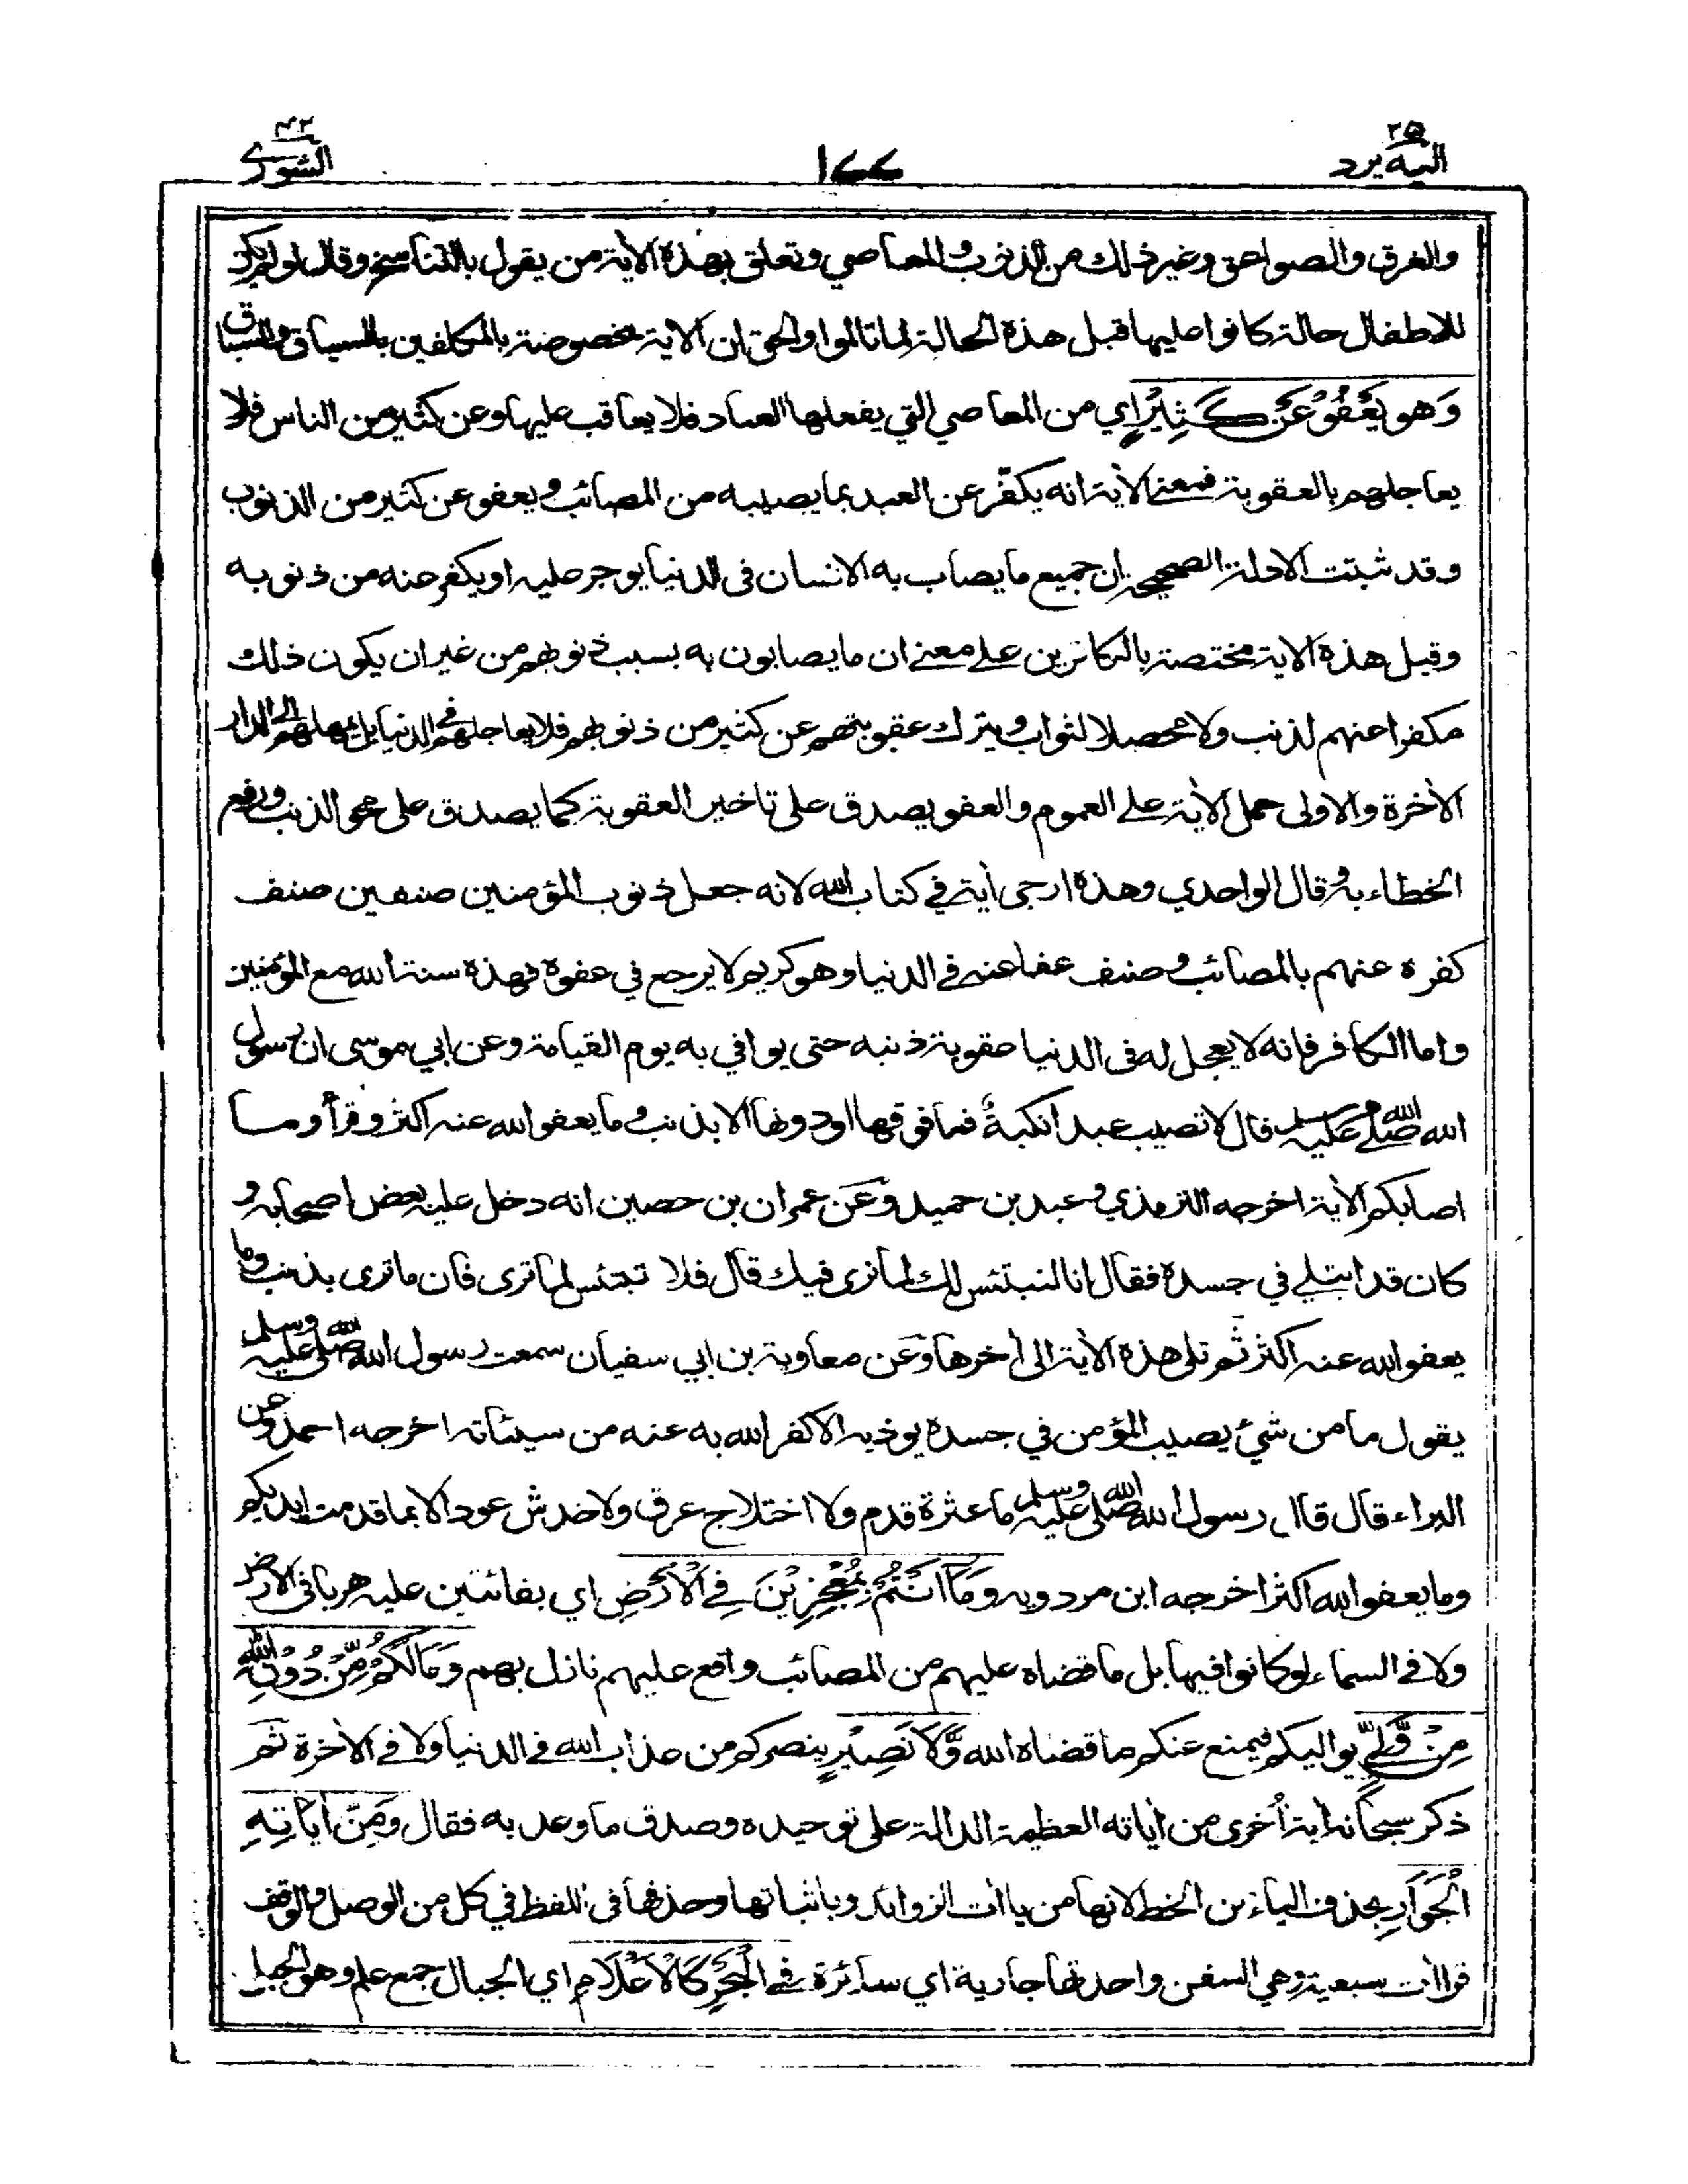 ٢٥
اليه يرد
١٧٧
٤٢
الشورى
والغرق والصواعق وغير ذلك من الذنوب والمعاصي وتعلق بهذه الأية من يقول بالتناسخ وقال لو لم يكن
للاطفال حالة كانوا عليها قبل هذه الحالة لما تالموا والحق ان الاية مخصوصة بالمكلفين بالسياق والسباق
وَهو يَعْفُوْ عَنْ كَثِيْرٍ اي من المعاصي التي يفعلها العباد فلا يعاقب عليها وعن كثير من الناس فلا
يعاجلهم بالعقوبة فمعنى الأية انه يكفّر عن العبد بما يصيبه من المصائب ويعفو عن كثير من الذنوب
وقد ثبتت الادلة الصحيحة ان جميع ما يصاب به الانسان فى الدنيا يوجر عليه او يكفر عنه من ذنوبه
وقيل هذه الاية مختصة بالكافرين على معنى ان ما يصابون به بسبب ذنوبهم من غير ان يكون ذلك
مكفرا عنهم لذنب ولا محصلا لثواب ويترك عقوبتهم عن كثير من ذنوبهم فلا يعاجلهم في الدنيا بل يمهلهم الى الدار
الأخرة والاولى حمل الأية على العموم والعفو يصدق على تاخير العقوبة كما يصدق على محو الذنب ورفع
الخطاء به وقال الواحدي وهذه ارجى أية في كتاب الله لانه جعل ذنوب المؤمنين صنفين صنف
كفره عنهم بالمصائب وصنف عفا عنه في الدنيا وهو كريم لا يرجع في عفوه فهذه سنة الله مع المؤمنين
واما الكافر فإنه لا يعجل له فى الدنيا عقوبة ذنبه حتى يوافي به يوم القيامة وعن ابي موسى ان رسول
الله صلى الله عليه وسلم قال لا تصيب عبدا نكبةٌ فما فوقها او دونها الا بذنب وما يعفو الله عنه اكثر وقرأ وما
اصابكم الأية اخرجه الترمذي وعبد بن حميد وعن عمران بن حصين انه دخل عليه بعض اصحابه و
كان قد ابتلى في جسده فقال انا لنبتئس لك لما نرى فيك قال فلا تبتئس لما ترى فان ما ترى بذنب وما
يعفو الله عنه اكثر ثم تلى هذه الأية الى أخرها وعن معاوية بن ابي سفيان سمعت رسول الله صلى الله عليه وسلم
يقول ما من شيء يصيب المؤمن في جسده يوذيه الا كفر الله به عنه من سيئاته اخرجه احمد وعن
البراء قال قال رسول الله صلى الله عليه وسلم ما عثرة قدم ولا اختلاج عرق ولا خدش عود الا بما قدمت ايديكم
وما يعفو الله اكثر اخرجه ابن مردويه وَمَآ اَنْتُمْ بِمُعْجِزِيْنَ فِي الْاَرْضِ اي بفائتين عليه هربا فى الارض
ولا في السماء لو كانوا فيها بل ما قضاه عليهم من المصائب واقع عليهم نازل بهم وَمَا لَكُمْ مِّنْ دُوْنِ اللّٰهِ
مِنْ وَّلِيٍّ يواليكم فيمنع عنكم ما قضاه الله وَّلَا نَصِيْرٍ ينصركم من عذاب الله في الدنيا ولا في الأخرة ثم
ذكر سبحانه أية أخرى من أياته العظيمة الدالة على توحيده وصدق ما وعد به فقال وَمِنْ اٰيَاتِهِ
الْجَوَارِ بحذف الياء من الخط لانها من ياأت الزوائد وباثباتها وحذفها في اللفظ في كل من الوصل والوقف
قراأت سبعية وهي السفن واحدتها جارية اي سائرة فِي الْبَحْرِ كَالْاَعْلَامِ اي الجبال جمع علم وهو الجبل